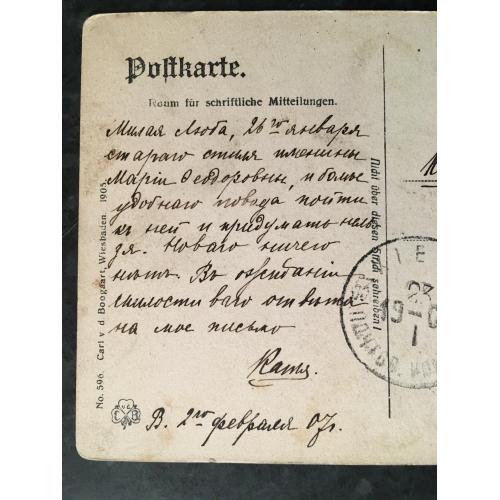 Postkarte.
Raum für schriftliche Mitteilungen.
Милая Люба, 26го января
стараго стиля именины
Маріи Ѳеодоровны, и болѣе
удобнаго повода пойти
къ ней и придумать нель-
зя. Новаго ничего
нѣтъ. Въ ожиданіи
милостиваго отвѣта
на мое письмо
Катя.
В. 2го февраля 07г.
Nicht über diesen Strich schreiben!
No. 596. Carl v. d. Boogaart, Wiesbaden. 1905.